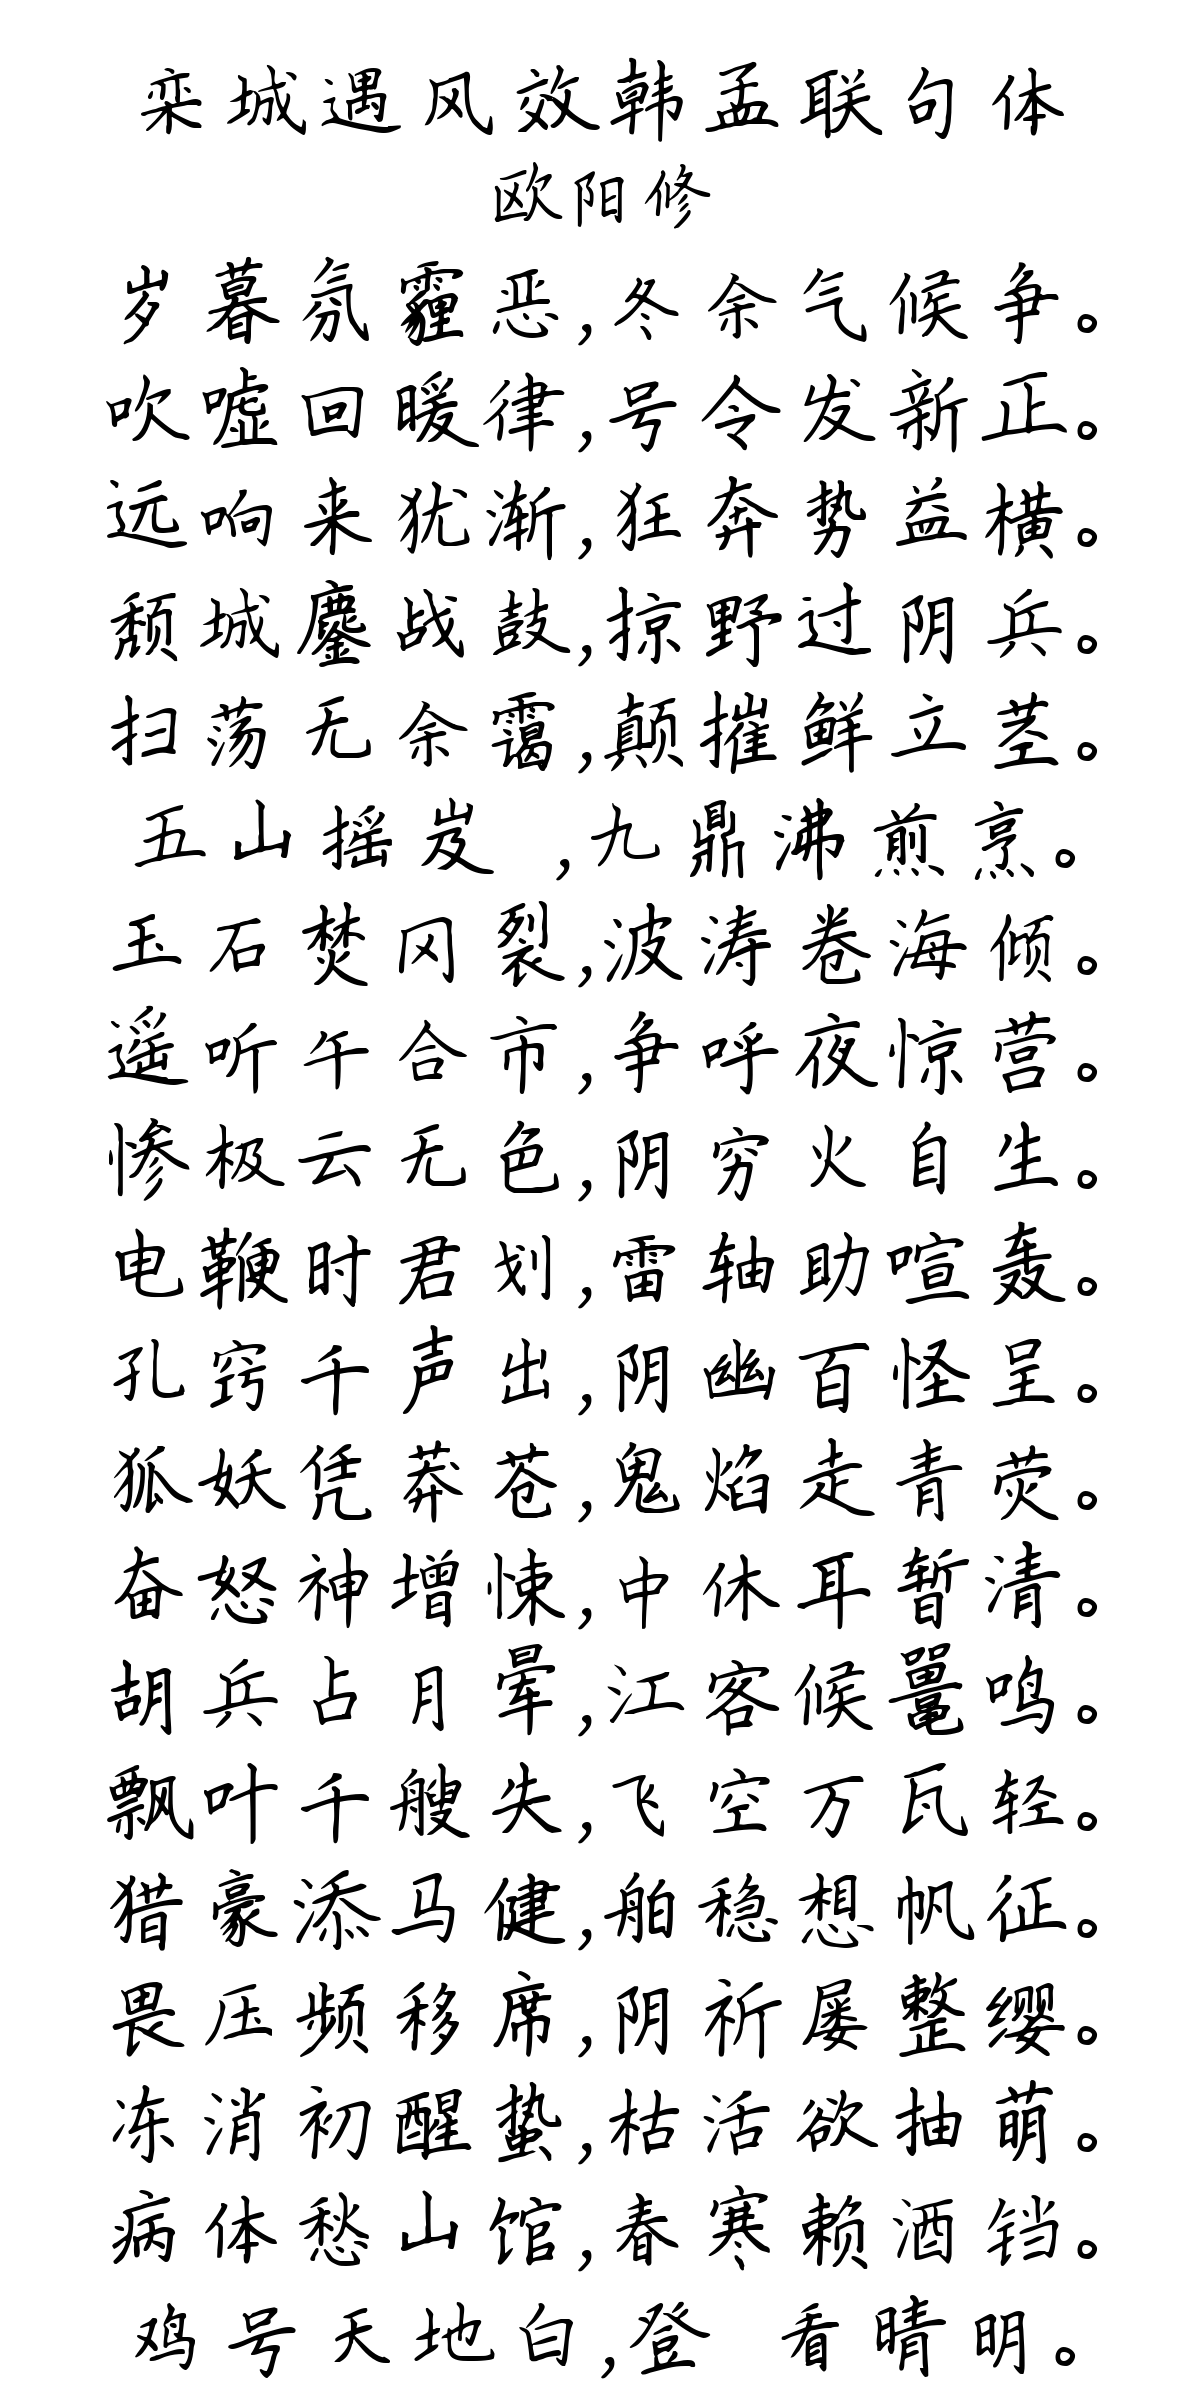 栾城遇风效韩孟联句体
欧阳修
岁暮氛霾恶,冬余气候争。
吹嘘回暖律,号令发新正。
远响来犹渐,狂奔势益横。
颓城鏖战鼓,掠野过阴兵。
扫荡无余霭,颠摧鲜立茎。
五山摇岌 ,九鼎沸煎烹。
玉石焚冈裂,波涛卷海倾。
遥听午合市,争呼夜惊营。
惨极云无色,阴穷火自生。
电鞭时君划,雷轴助喧轰。
孔窍千声出,阴幽百怪呈。
狐妖凭莽苍,鬼焰走青荧。
奋怒神增悚,中休耳暂清。
胡兵占月晕,江客候鼍鸣。
飘叶千艘失,飞空万瓦轻。
猎豪添马健,舶稳想帆征。
畏压频移席,阴祈屡整缨。
冻消初醒蛰,枯活欲抽萌。
病体愁山馆,春寒赖酒铛。
鸡号天地白,登 看晴明。